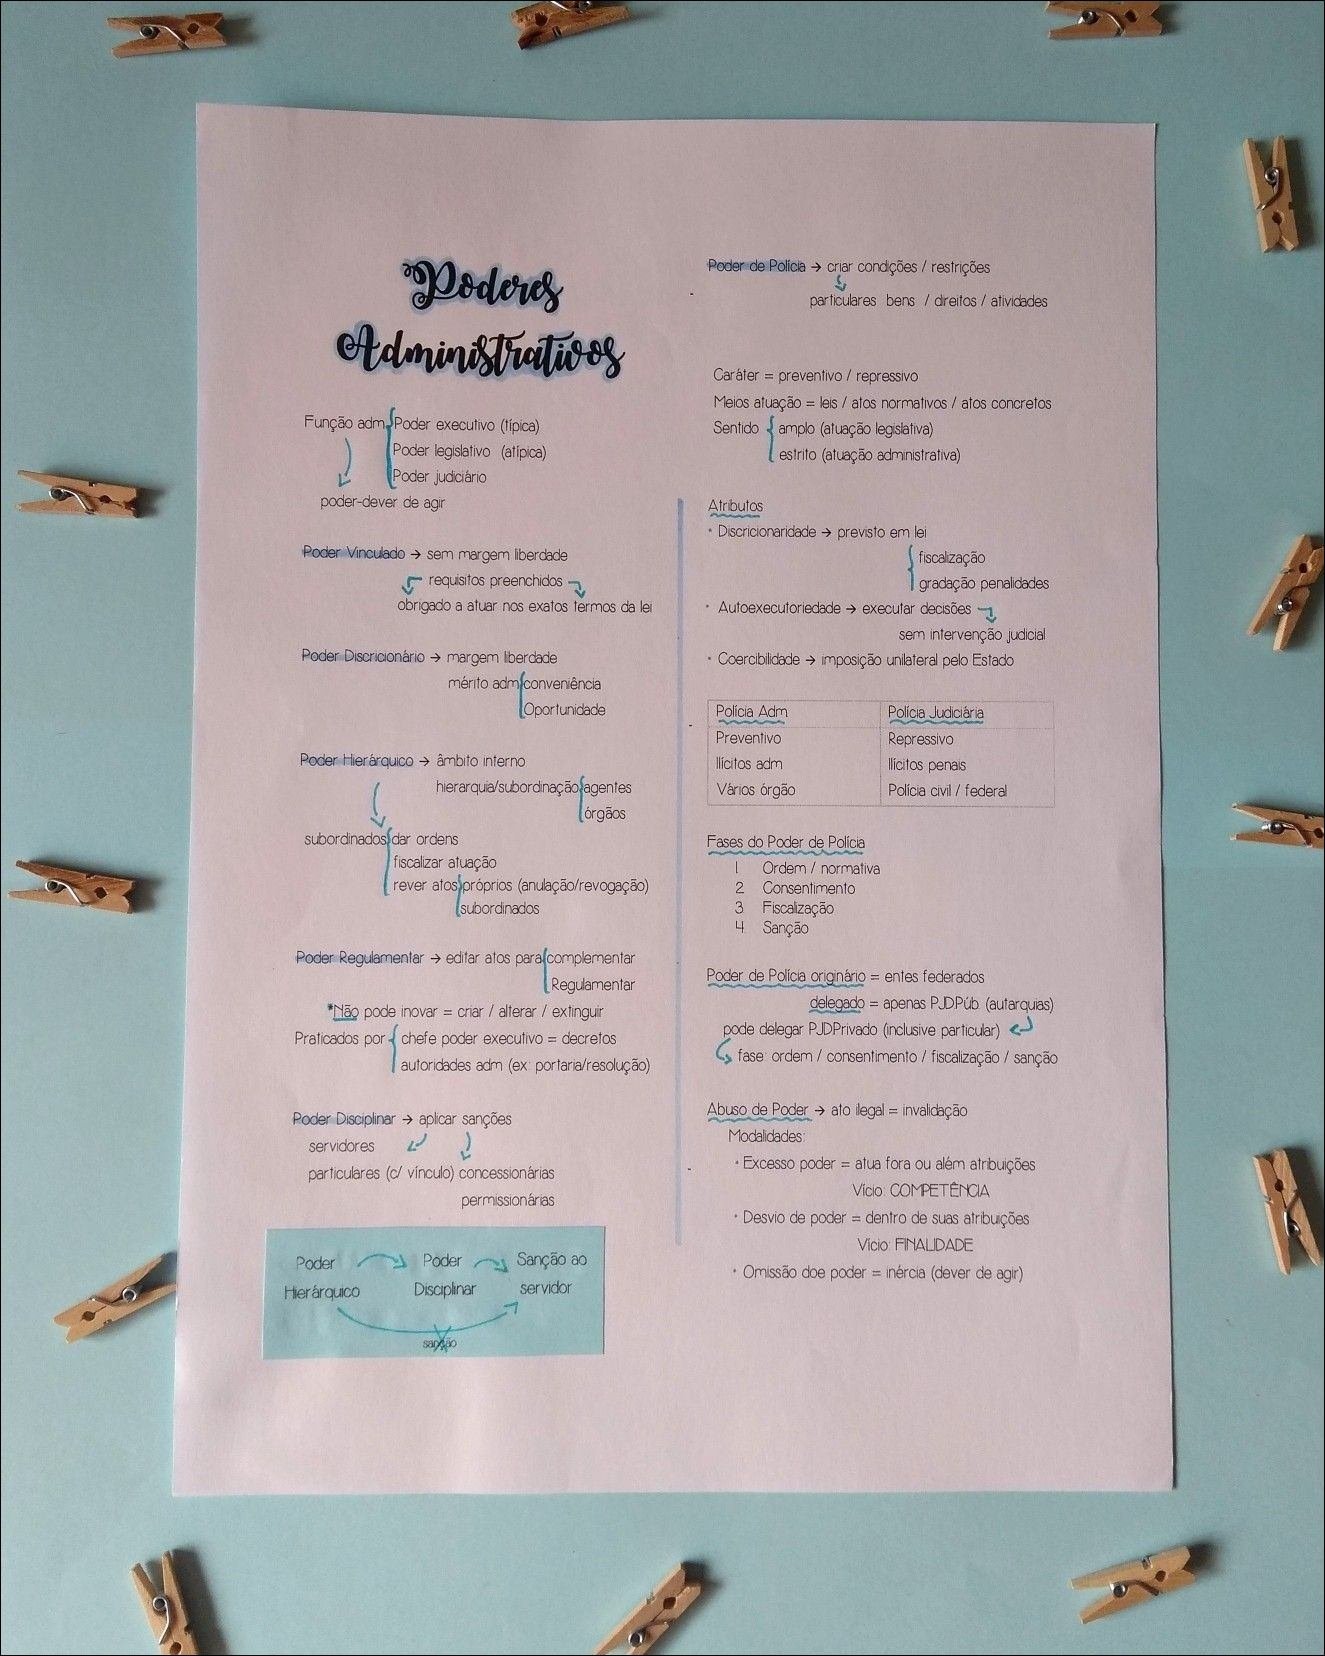 Poderes
Administrativos
Função adm Poder executivo (típica)
Poder legislativo (atípica)
Poder judiciário
poder-dever de agir
Poder Vinculado → sem margem liberdade
requisitos preenchidos
obrigado a atuar nos exatos termos da lei
Poder Discricionário → margem liberdade
mérito adm conveniência
Oportunidade
Poder Hierárquico → âmbito interno
hierarquia/subordinação agentes
órgãos
subordinados dar ordens
fiscalizar atuação
rever atos próprios (anulação/revogação)
subordinados
Poder Regulamentar → editar atos para complementar
Regulamentar
*Não pode inovar = criar / alterar / extinguir
Praticados por chefe poder executivo = decretos
autoridades adm (ex: portaria/resolução)
Poder Disciplinar → aplicar sanções
servidores
particulares (c/ vínculo) concessionárias
permissionárias
Poder Poder Sanção ao
Hierárquico Disciplinar servidor
sanção
Poder de Polícia → criar condições / restrições
particulares bens / direitos / atividades
Caráter = preventivo / repressivo
Meios atuação = leis / atos normativos / atos concretos
Sentido amplo (atuação legislativa)
estrito (atuação administrativa)
Atributos
• Discricionaridade → previsto em lei
fiscalização
gradação penalidades
• Autoexecutoriedade → executar decisões
sem intervenção judicial
• Coercibilidade → imposição unilateral pelo Estado
Polícia Adm Polícia Judiciária
Preventivo Repressivo
Ilícitos adm Ilícitos penais
Vários órgão Polícia civil / federal
Fases do Poder de Polícia
1. Ordem / normativa
2. Consentimento
3. Fiscalização
4. Sanção
Poder de Polícia originário = entes federados
delegado = apenas PJDPúb (autarquias)
pode delegar PJDPrivado (inclusive particular)
fase: ordem / consentimento / fiscalização / sanção
Abuso de Poder → ato ilegal = invalidação
Modalidades:
• Excesso poder = atua fora ou além atribuições
Vício: COMPETÊNCIA
• Desvio de poder = dentro de suas atribuições
Vício: FINALIDADE
• Omissão doe poder = inércia (dever de agir)